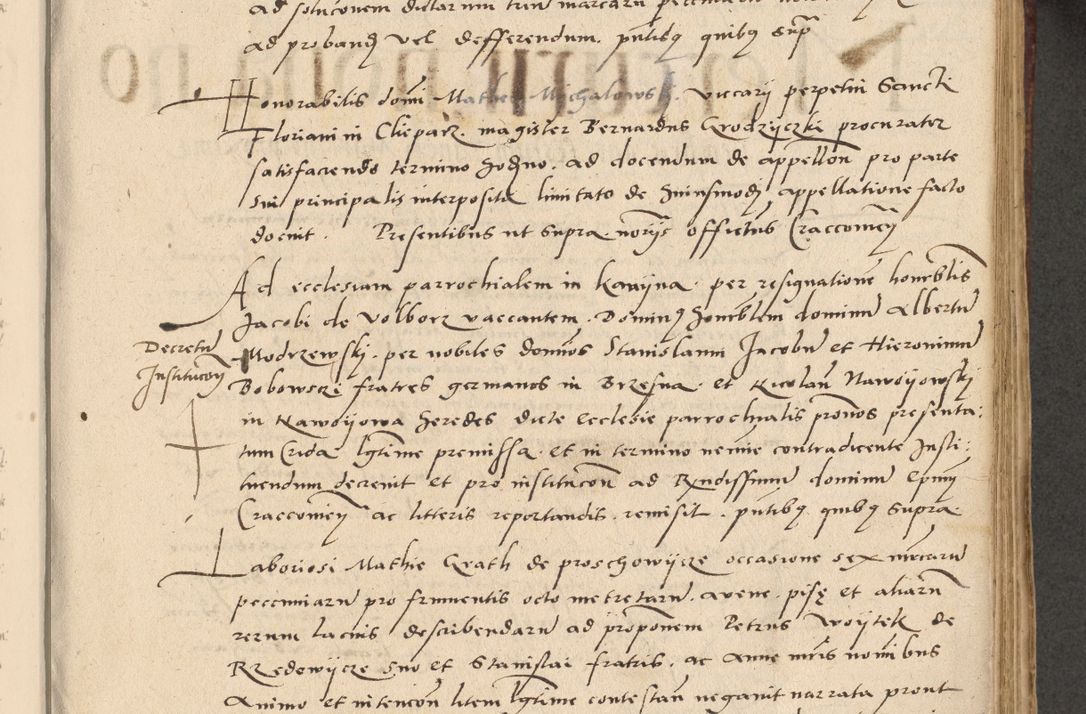 ad solucionem dictarum trium marcarum
ad proband vel defferendum. pntibq quibq sup
Honorabilis domi Mathei Mychalowski. viccarii perpetui Sancti
Floriani in Cliepar. magister Bernardus Grodzyczki procurator
satisfaciendo termino hodno. ad docendum de appellon pro parte
sui principalis interposita limitato de huiusmodi appellatione facto
docuit. Presentibus ut supra. norijs officius Craccovien
Ad ecclesiam parrochialem in Kamyna. per resignationem honorblis
Jacobi de Volborz vaccantem. Dominq honorblem dominum Albertum
Decretum
Modrzewski. per nobiles domnos Stanislaum Jacobum et Hieronimum
Institucon
Bobowsczi fratres germanos in Brzesna. et Nicolaum Nawoyowski
in Nawoyowa heredes dicte Ecclesie parrochialis pronos presenta:
tum Crida lgtime premissa. et in termino nemine contradicente Insti:
tuendum decrevit et pro institucon ad Rndissimum dominum Epum
Craccovien ac litteris reportandis. remisit. pntibq quibq supra.
Laboriosi Mathie Grath de proschowycze occasione sex mrcarum
peccuniarum pro frumentis octo metretarum. avene. pise et aliarum
rerum lacius describendarum ad proponem Petrus Woytek de
Rzedowycze suo et Stanislai fratris. ac Anne mris nomibus
Animo et intencon litem lgtime contestan negavit narrata prout